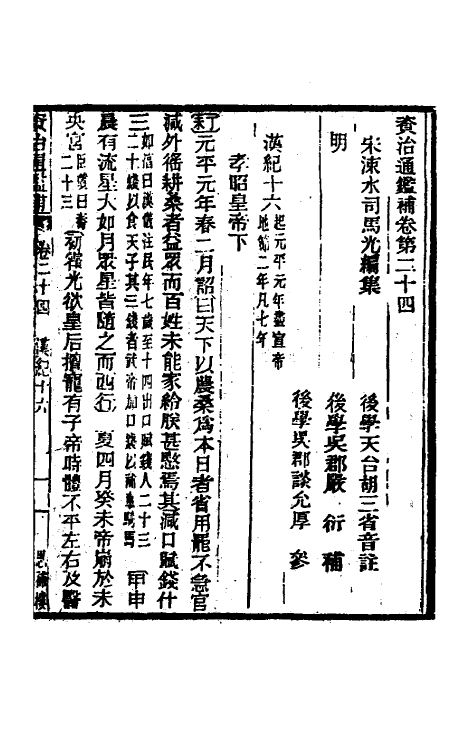 資治通鑑補卷第二十四
宋涑水司馬光編集
後學天台胡三省音註
明
後學吳郡嚴衍補
後學吳郡談允厚參
漢紀十六起元平元年盡宣帝
地節二年凡七年
孝昭皇帝下
元平元年春二月詔曰天下以農桑爲本日者省用罷不急官
減外徭耕桑者益眾而百姓未能家給朕甚愍焉其減口賦錢什
三如淳曰漢儀注民年七歲至十四出口賦錢人二十三
二十錢以食天子其三錢者武帝加口錢以補車騎馬
甲申
晨有流星大如月眾星皆隨之而西行 夏四月癸未帝崩於未
央宮臣瓚曰壽
二十三
初霍光欲皇后擅寵有子帝時體不平左右及醫
資治通鑑補 卷二十四 漢紀十六 一 思補樓